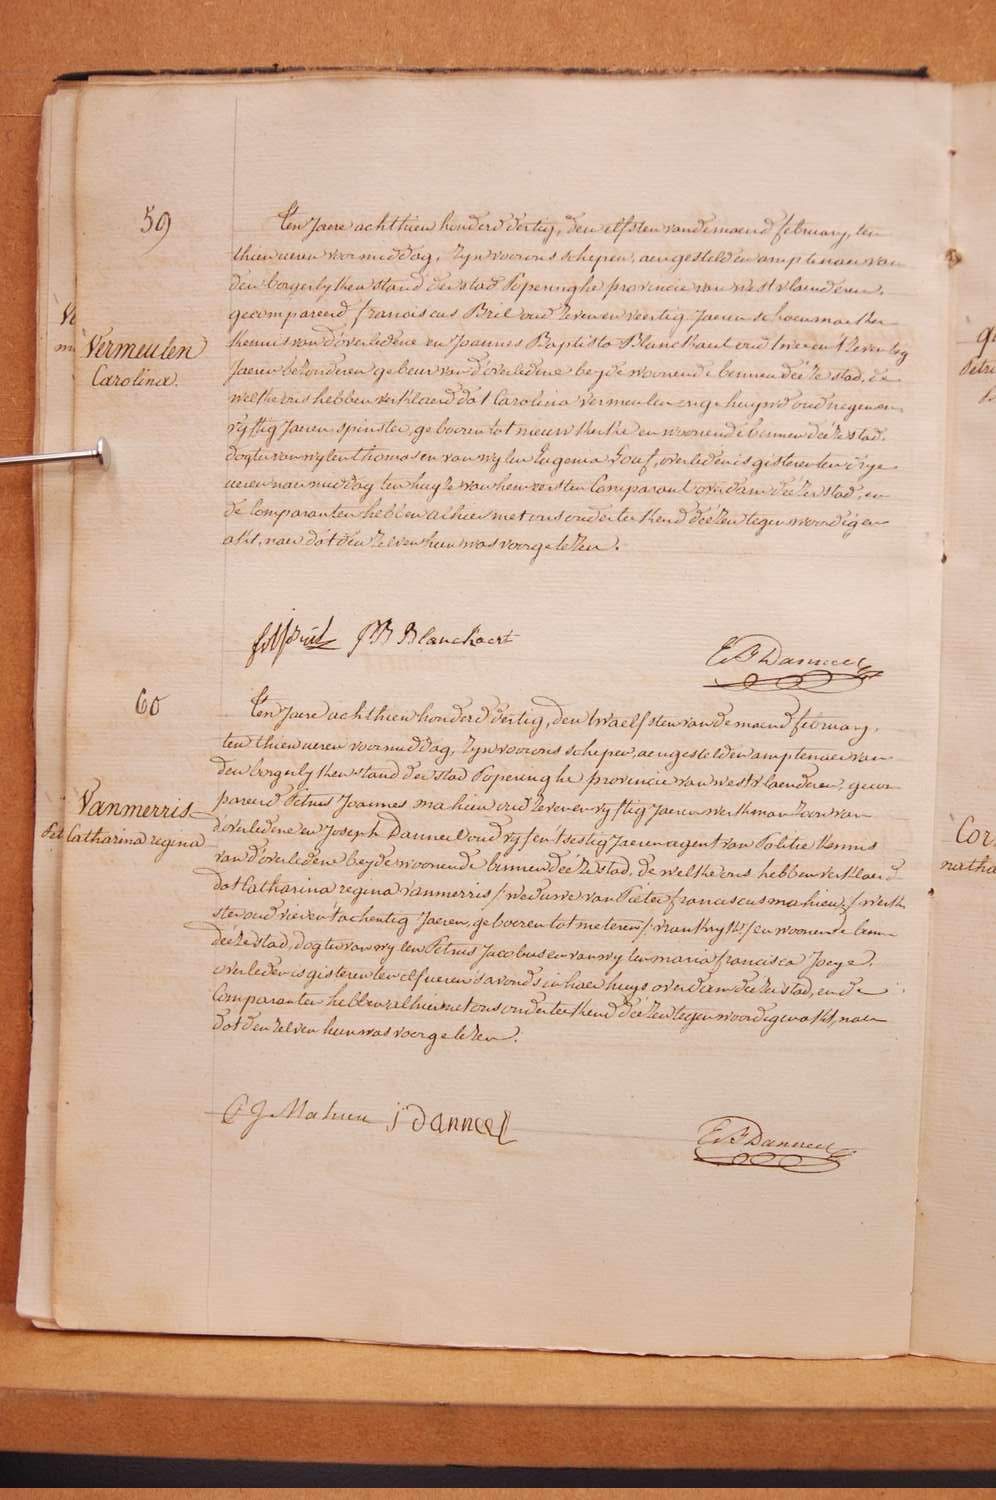 59
Ten Jaere achthien honderd dertig, den elfsten van de maend february, ten
thien ueren voormiddag, zyn voor ons schepen, aengestelden amptenaer van
den borgerlyken stand der stad Poperinghe provincie van westvlaenderen,
gecompareerd franciscus Bril oud zeven en veertig Jaeren schoenmaeker
kennis van d'overledene en Joannes Baptista Blanckaert oud twee en tzeventig
Jaeren bezonderen gebeur van d'overledene beyde woonende binnen deéze stad, de
welke ons hebben verklaerd dat Carolina Vermeulen ongehuywd oud negen en
vyftig Jaeren spinster, geboren tot nieuwkerke en woonende binnen deéze stad,
dogter van wylen thomas en van wylen Eugenia
overleden is gisteren ten drye
ueren naermiddag ten huyze van hem eersten Comparant overdam deézer stad, en
de Comparanten hebben alhier met ons onderteekend deézen tegenwoordigen
akt, naer dat den zelven hun was voorgelezen.
Vermeulen
Carolina.
JB Blanckaert
E B Danneel
60
Ten Jaere achthien honderd dertig, den twaelfsten van de maend february,
ten thien ueren voormiddag, zyn voor ons schepen, aengestelden amptenaer van
den borgerlyken stand der stad Poperinghe provincie van westvlaenderen, gecom
pareerd Petrus Joannes mahieu oud zeven en vyftig Jaeren werkman zoon van
d'overledene en Joseph Danneel oud vyf en t'sestig Jaeren agent van Politie kennis
van d'overledene beyde woonende binnen deéze stad, de welke ons hebben verklaerd
dat Catharina regina vanmerris /: weduwe van Pieter franciscus mahieu :/ werk
ster oud vier en tachentig Jaeren, geboren tot meteren /: vrankryk :/ en woonende binnen
deéze stad, dogter van wylen Petrus Jacobus en van wylen maria francisca Joeye,
overleden is gisteren ten elf ueren s'avonds in haer huys overdam deézer stad, en de
Comparanten hebben alhier met ons onderteekend deézen tegenwoordigen akt, naer
dat den zelven hun was voorgelezen.
Vanmerris
Catharina regina
P J Mahieu j Danneel
E B Danneel